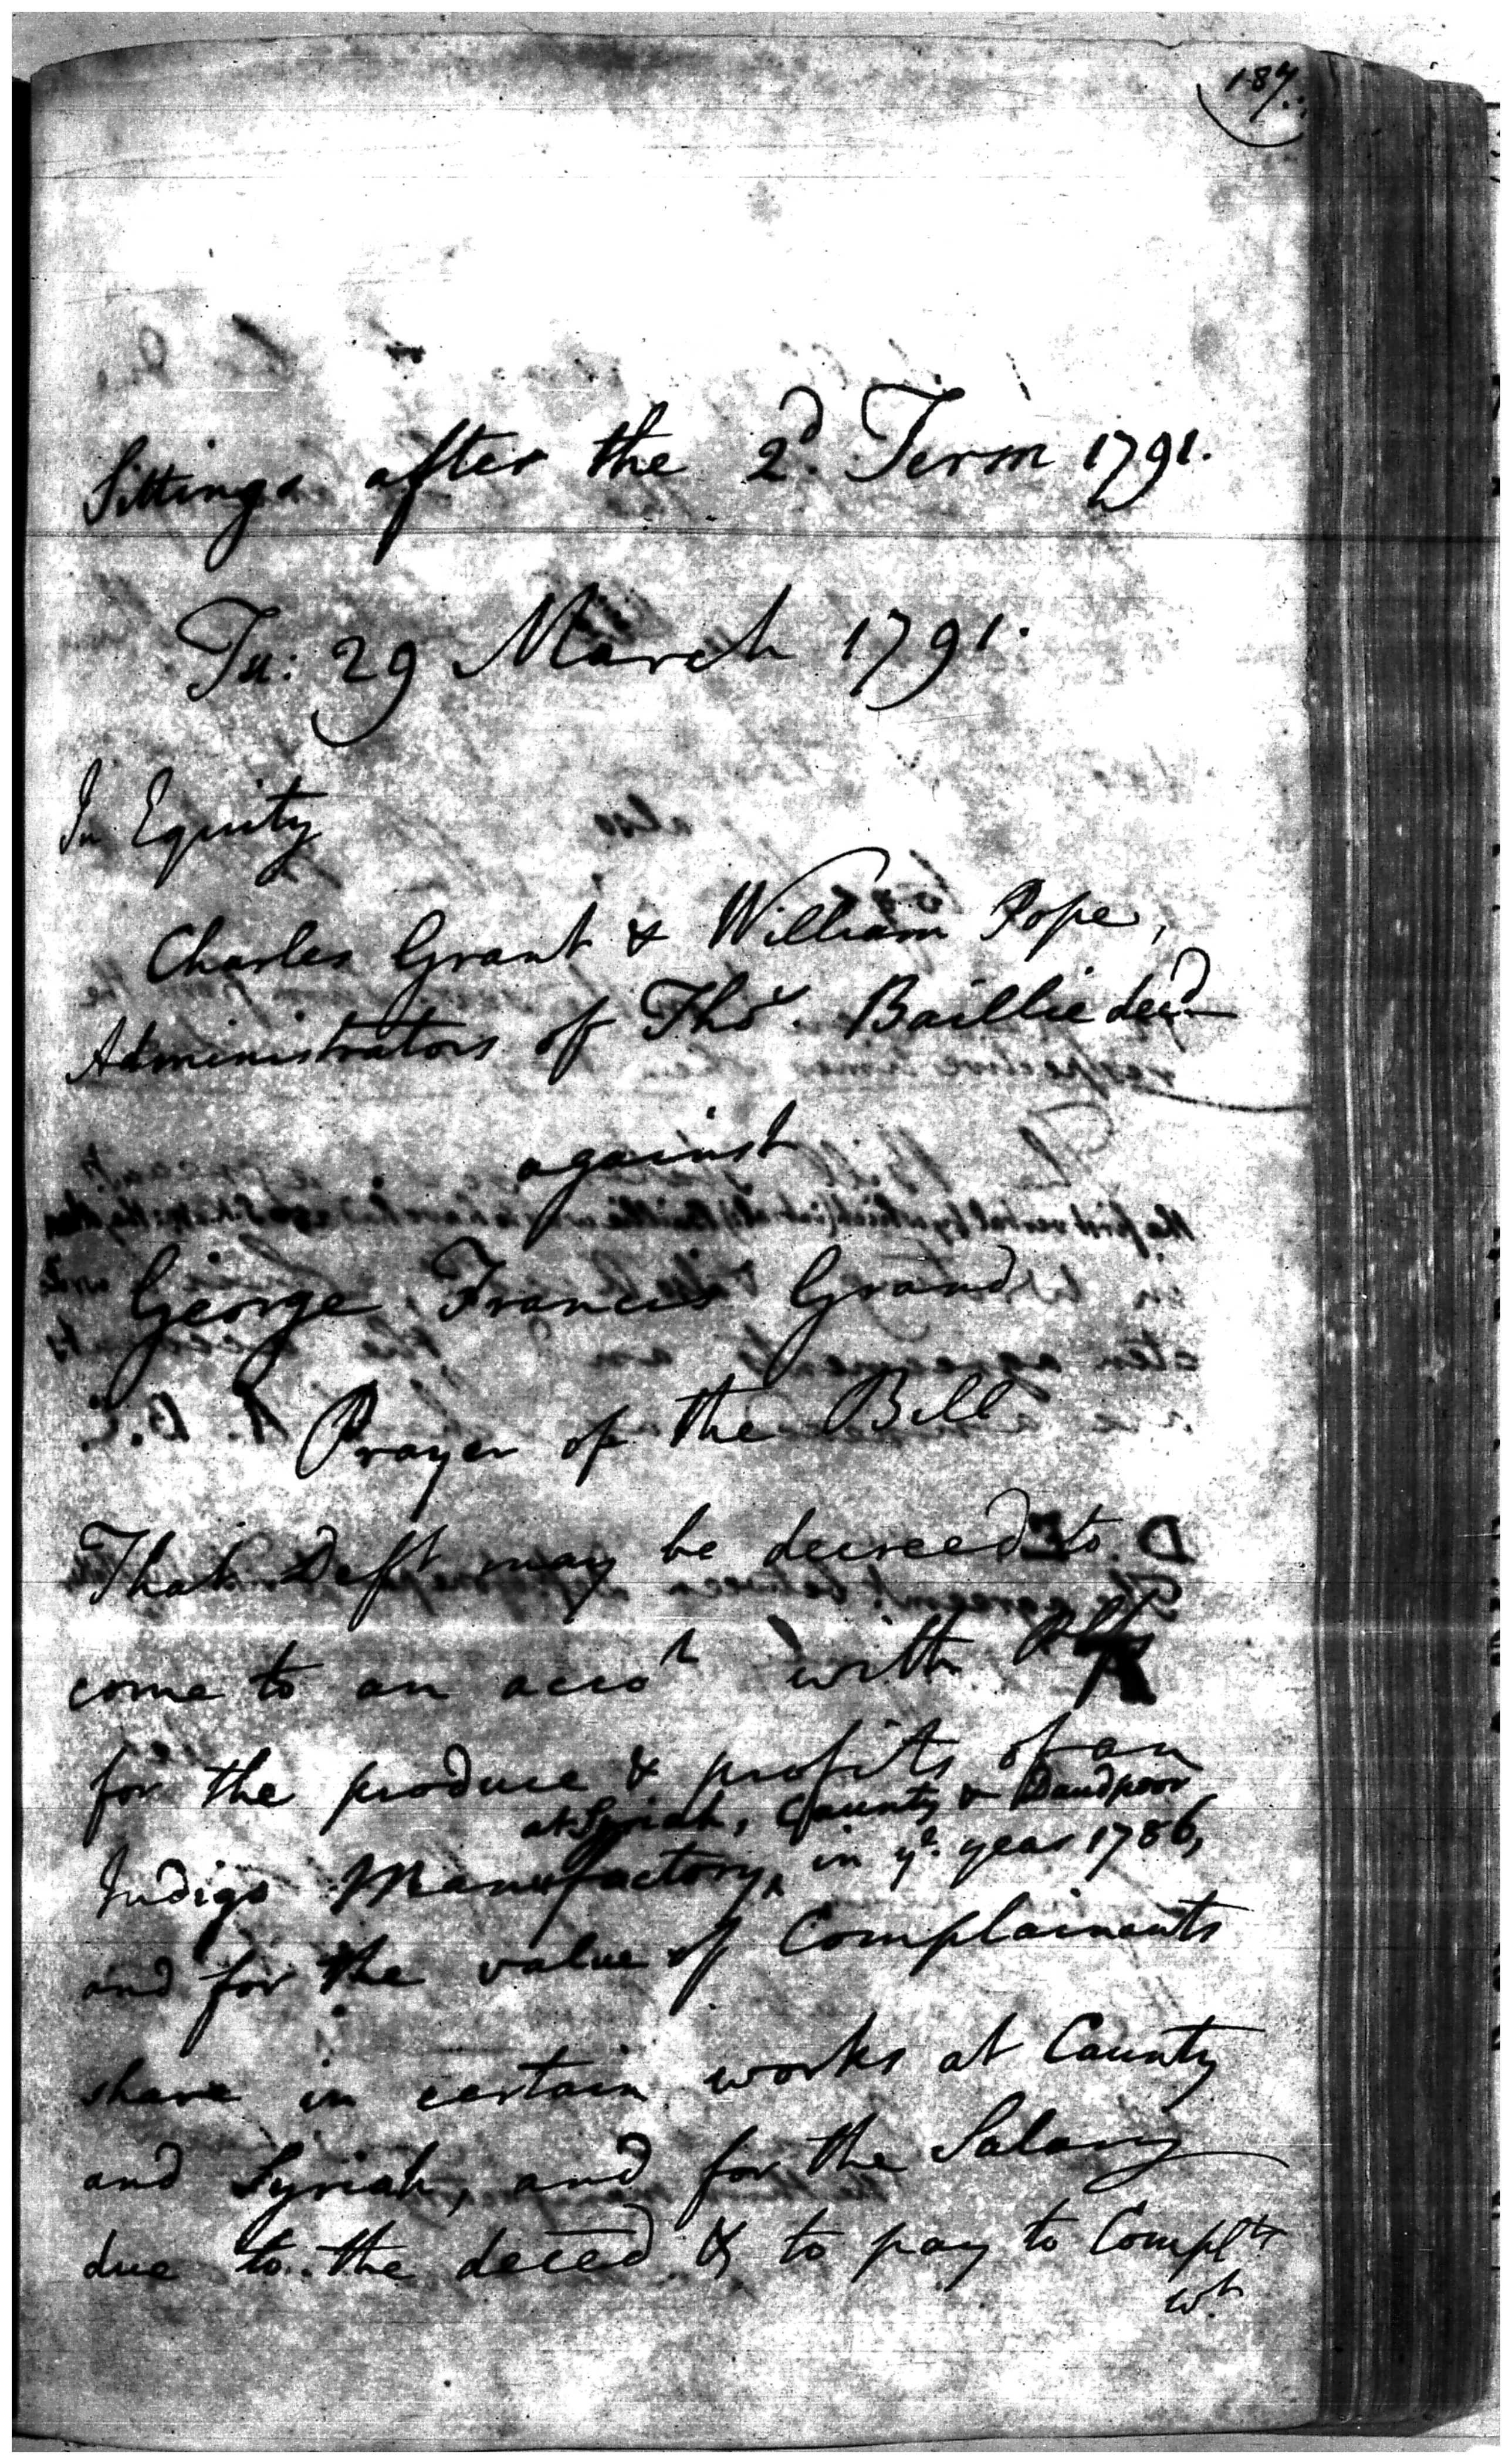 187.
Sittings after the 2d. Term 1791.
Tu: 29 March 1791.
In Equity
Charles Grant & William Pope,
Administrators of Thos. Baillie decd
against
George Francis Grand
Prayer of the Bill
That Deft may be decreed to
come to an accot with Plts
for the produce & profits of an
at Syriah, Caunty & Daudpoor
Indigo Manufactory, in ye. year 1786,
and for the value of Complainants
share in certain works at Caunty
and Syriah, and for the Salary
due to the deceed & to pay to Complts
wt.